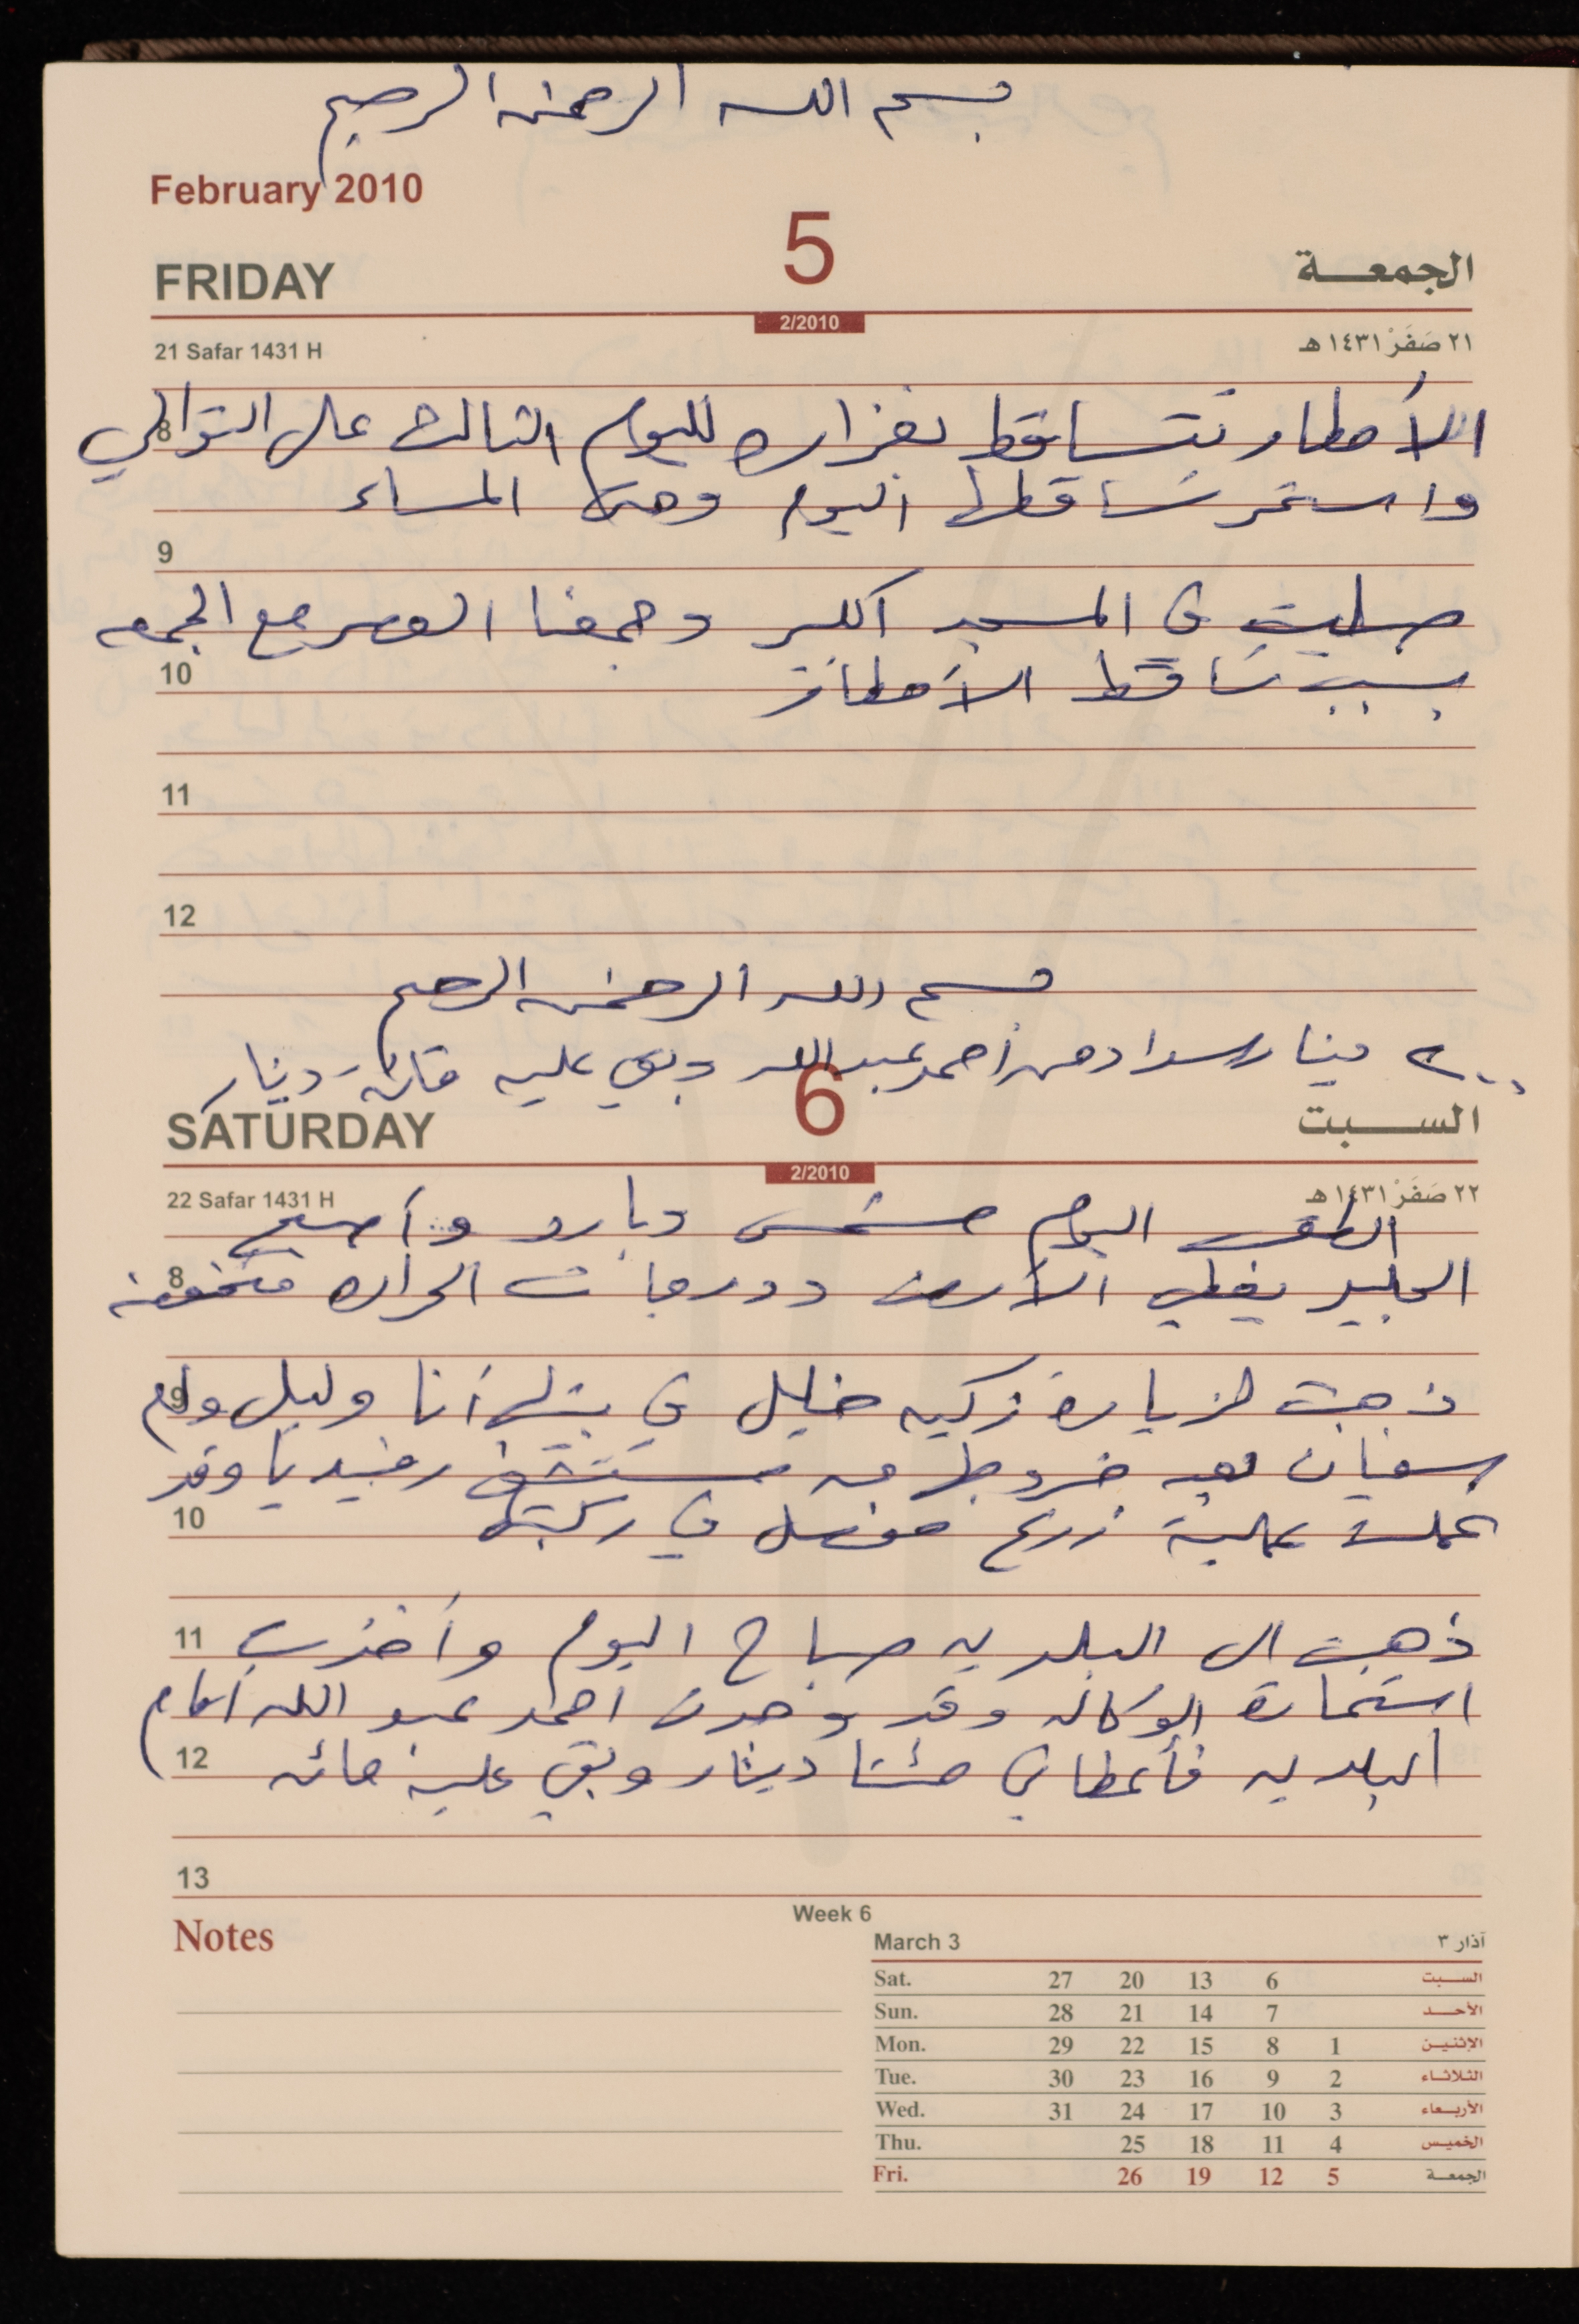 بسم الله الرحمن الرحيم
February 2010
5
FRIDAY
الجمعة
2/2010
21 Safar 1431 H
٢١ صَفَرْ ١٤٣١ هـ
الأمطار تتساقط بغزاره لليوم الثالث على التوالي
8
واستمر تساقطها اليوم وحتى المساء
9
صليت في المسجد الكبير وجمعنا العصر مع الجمعه
10
بسبب تساقط الأمطار
11
12
بسم الله الرحمن الرحيم
٢٠٠ دينار سداد من أحمد عبد الله وبقي عليه مائة دينار
6
SATURDAY
السبت
2/2010
22 Safar 1431 H
٢٢ صَفَرْ ١٤٣١ هـ
الطقس اليوم مشمس وبارد وأصبح
8
الجليد يغطي الأرض ودرجات الحراره منخفضه
ذهبت لزيارة زكيه خليل في بيتها أنا وليلى وام
9
سفيان بعد خروجها من مستشفى رفيديا وقد
عملت عملية زرع مفصل في ركبتها
10
ذهبت الى البلديه صباح اليوم وأخذت
11
استمارة الوكاله وقد وجدت احمد عبد الله أمام
البلديه فأعطاني مئتا دينار وبقي عليه مائه
12
13
Notes
Week 6
March 3
آذار ٣
Sat. 27 20 13 6 السبت
Sun. 28 21 14 7 الأحد
Mon. 29 22 15 8 1 الإثنين
Tue. 30 23 16 9 2 الثلاثاء
Wed. 31 24 17 10 3 الأربعاء
Thu. 25 18 11 4 الخميس
Fri. 26 19 12 5 الجمعة